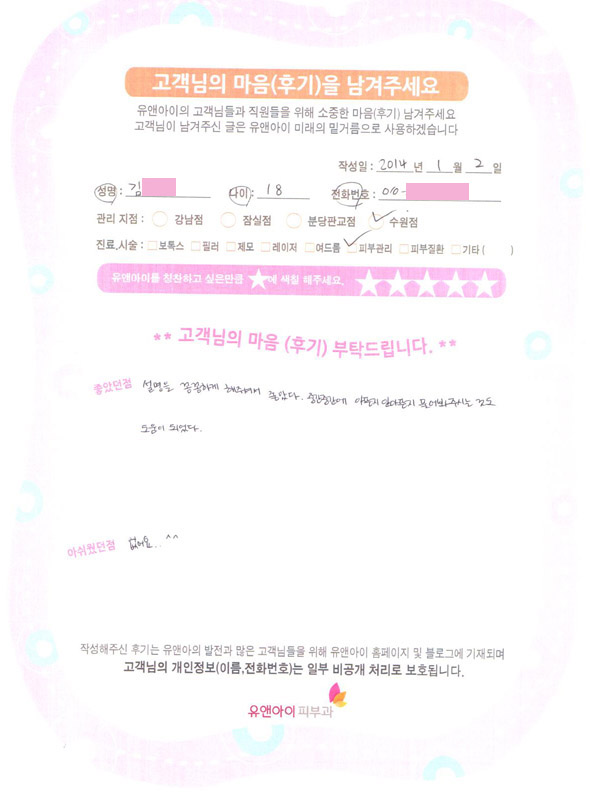 고객님의 마음(후기)을 남겨주세요
유앤아이의 고객님들과 직원들을 위해 소중한 마음(후기) 남겨주세요
고객님이 남겨주신 글은 유앤아이 미래의 밑거름으로 사용하겠습니다
작성일 : 2014 년 1 월 2 일
성명 : 김 나이 : 18 전화번호 : 010-
관리 지점 : 강남점 잠실점 분당판교점 수원점
진료,시술 : 보톡스 필러 제모 레이저 여드름 피부관리 피부질환 기타 ( )
유앤아이를 칭찬하고 싶은만큼 ★에 색칠 해주세요. ★★★★★
** 고객님의 마음 (후기) 부탁드립니다. **
좋았던점 설명을 꼼꼼하게 해주셔서 좋았다. 중간중간에 아픈지 안아픈지 물어봐주시는 것도
도움이 되었다.
아쉬웠던점 없어요.. ^^
작성해주신 후기는 유앤아의 발전과 많은 고객님들을 위해 유앤아이 홈페이지 및 블로그에 기재되며
고객님의 개인정보(이름,전화번호)는 일부 비공개 처리로 보호됩니다.
유앤아이 피부과